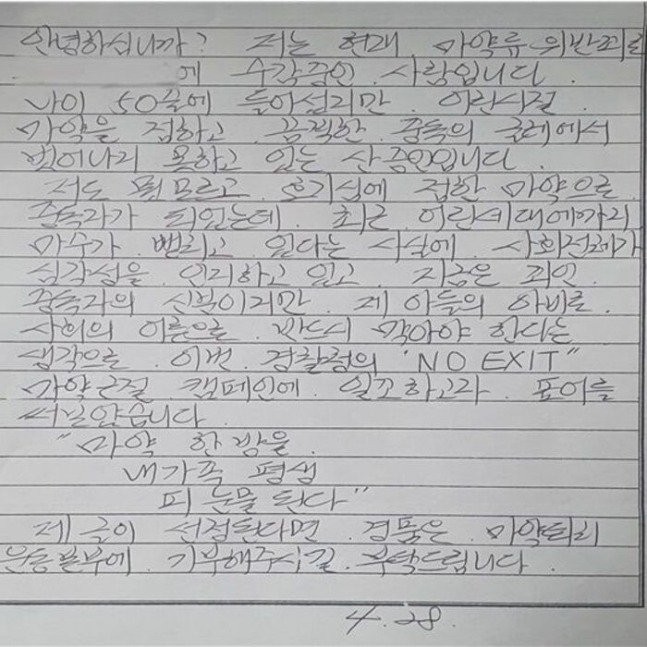 안녕하십니까? 저는 현재 마약류위반죄로
에 수감중인 사람입니다.
나이 50줄에 들어섰지만. 어린시절
마약을 접하고 끔찍한 중독의 굴레에서
벗어나지 못하고 있는 산 증인입니다.
저도 뭣 모르고 호기심에 접한 마약으로
중독자가 되었는데. 최근 어린세대에까지
마수가 뻗치고 있다는 사실에 사회전체가
심각성을 인지하고 있고 지금은 죄인.
중독자의 신분이지만. 제 아들의 아비로.
사회의 이름으로 반드시 막아야 한다는
생각으로 이번 경찰청의 'NO EXIT"
마약근절 캠페인에 일조하고자 표어를
써보았습니다.
"마약 한 방울.
내가족 평생
피 눈물 된다"
제 글이 선정된다면 경품은 마약퇴치
운동본부에 기부해주시길 부탁드립니다.
4.28.